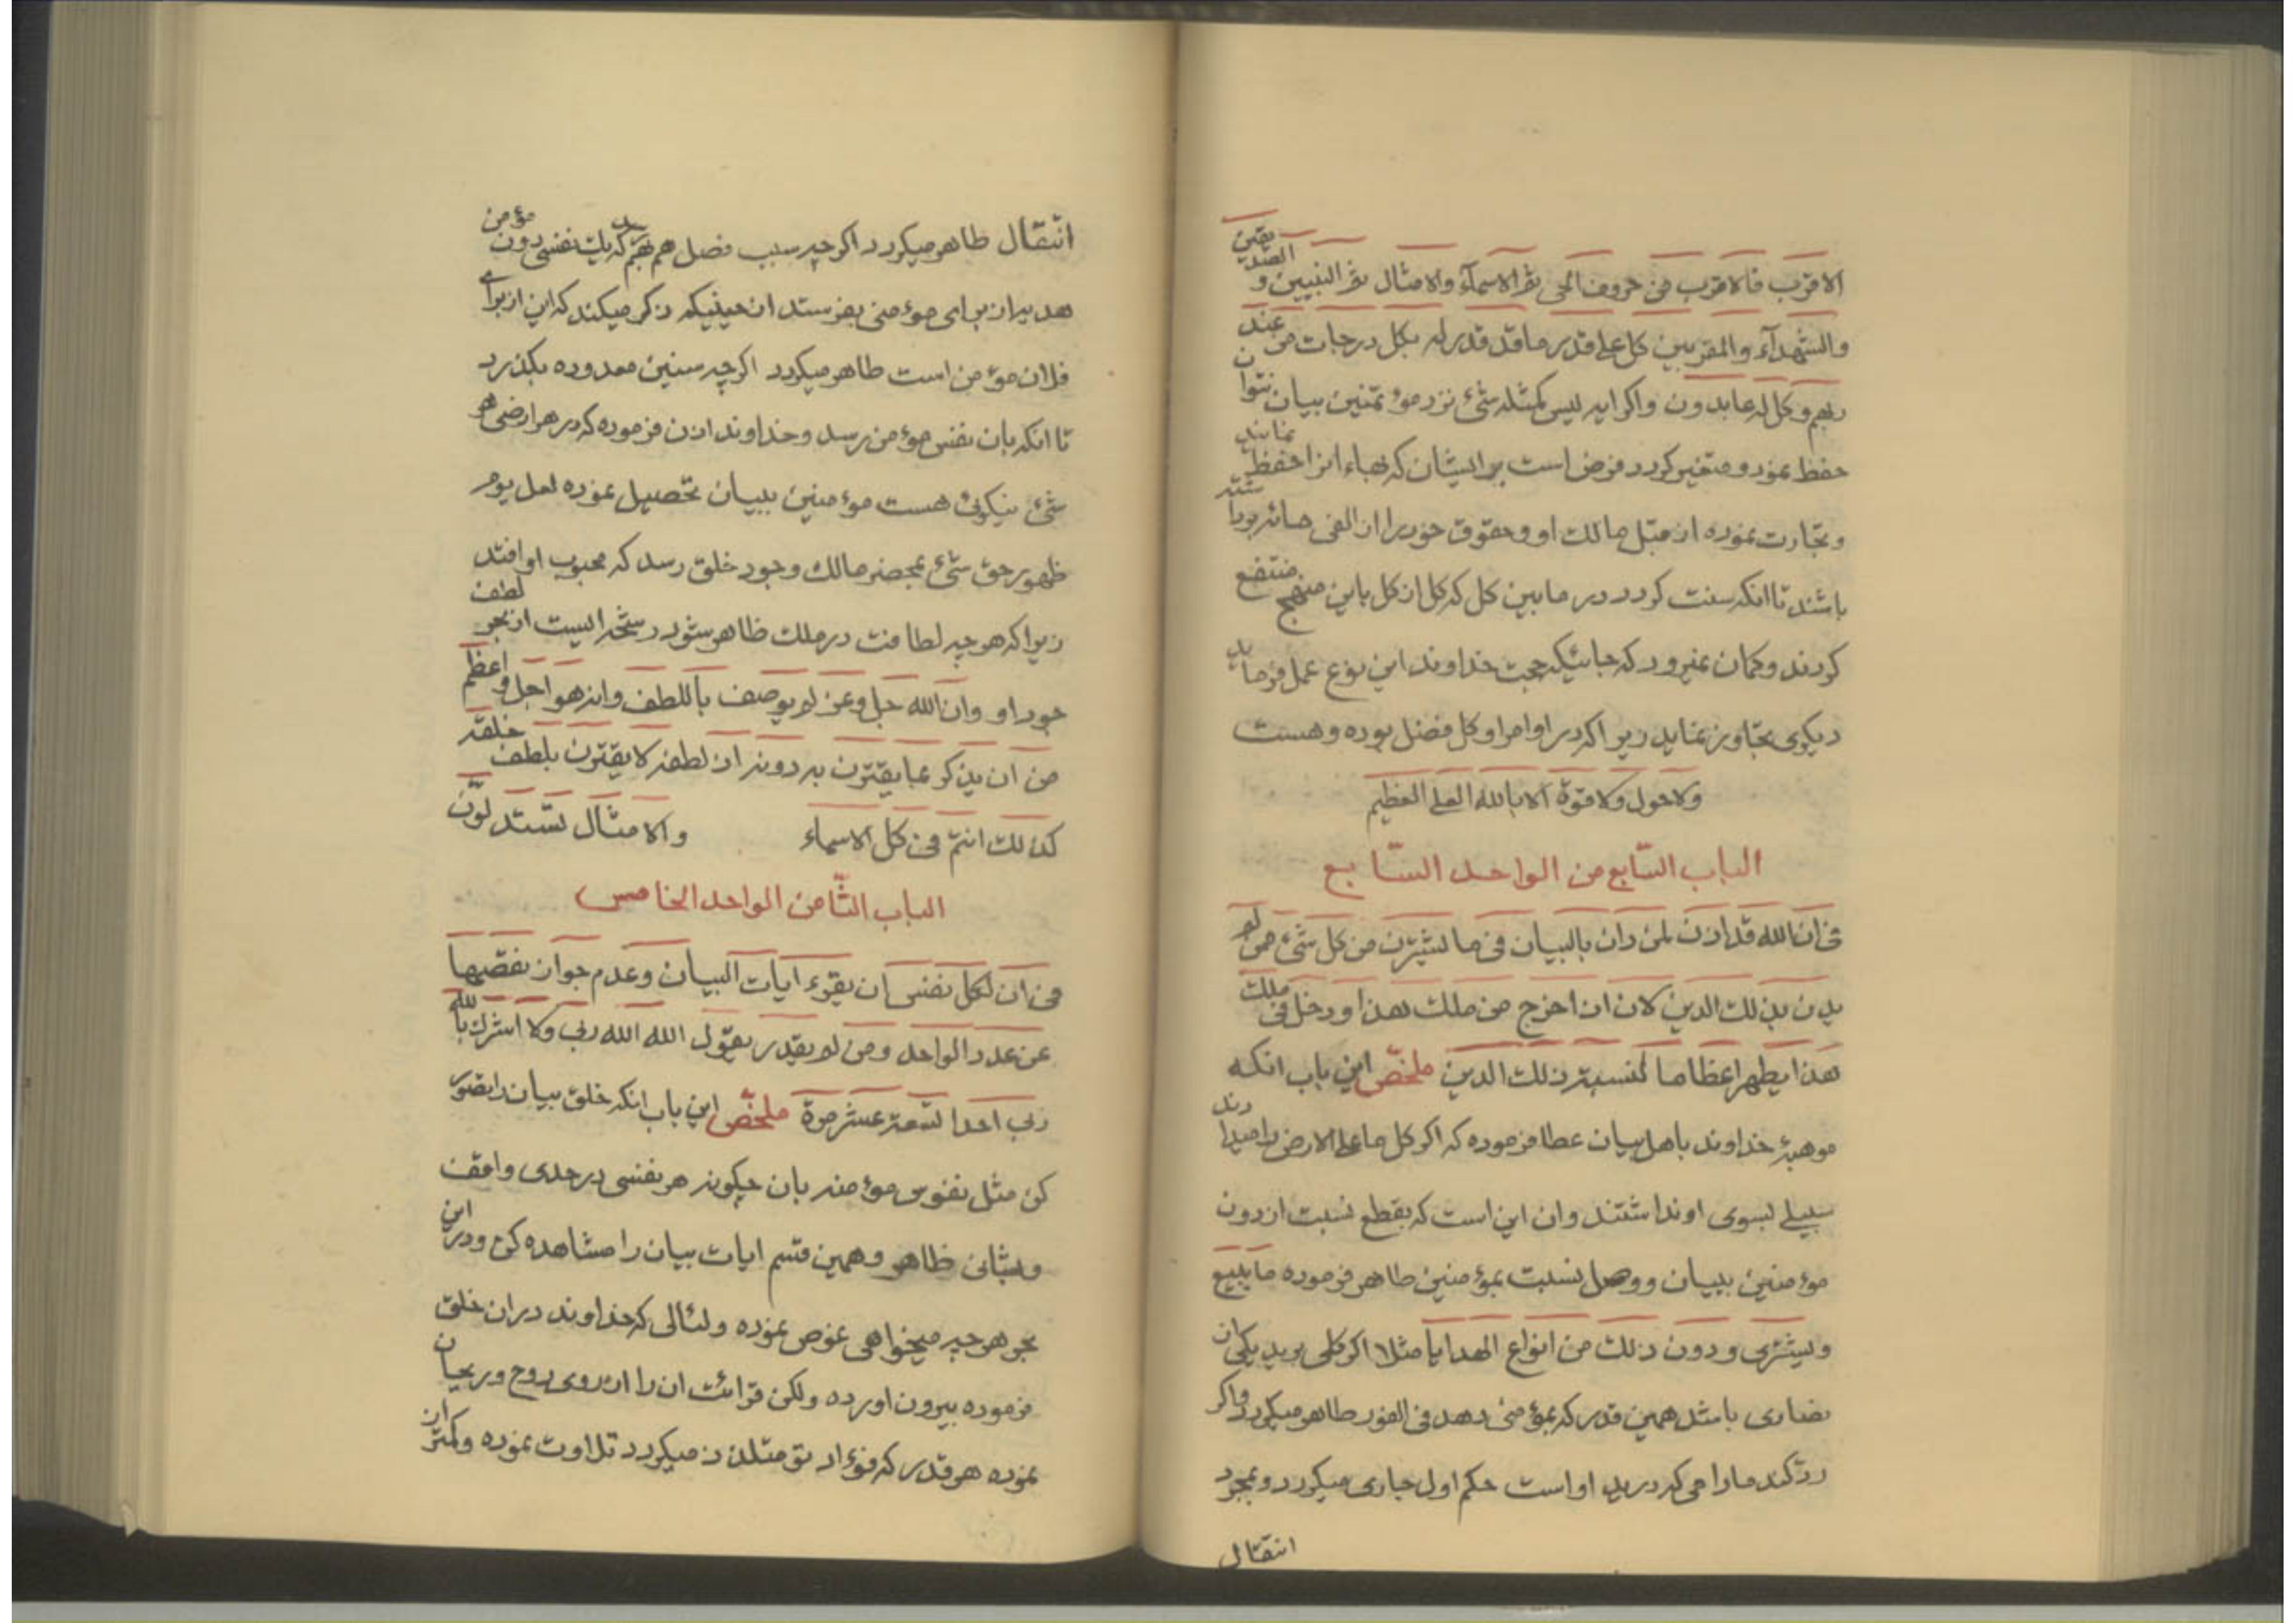 الاقرب فالاقرب من حروف الحی ثم الاسمآء والامثال ثم النبیین و الصدیقین
والشهدآء والمقربین کل علی قدر ما قد قدر له بکل درجات من عند
ربهم وکل له عابدون واکر ایه لیس کمثله شئ نزد مؤتمنین بیان نتوان
حفظ نمود و متغیر کردد فرض است بر ایشان که بهاء انرا حفظ نمایند
وتجارت نموده از قبل مالک او وحقوق خود را از الفی صائر برداشته
باشند تا انکه سنت کردد در ما بین کل که کل از کل باین منهج منتفع
کردند وکمان نمیرود که جائیکه حجت خداوند این نوع عمل فرماید
دیکری تجاوز نماید زیرا که در اوامر او کل فضل بوده وهست
ولا حول ولا قوة الا بالله العلی العظیم
الباب السّابع من الواحد السّابع
فی ان الله قد اذن لمن دان بالبیان فی ما یشترن من کل شئ ممن لم
یدن بذلک الدین لان اذا خرج من ملک هذا ودخل فی ملک
هذا یطهر اعظاما لنسبته ذلک الدین ملخّص این باب انکه
موهبة خداوند باهل بیان عطا فرموده که اکر کل ما علی الارض را میدادند
سبیلی بسوی او نداشتند وان این است که بقطع نسبت از دون
مؤمنین ببیان ووصل نسبت بمؤمنین طاهر فرموده ما یبیع
ویشتری ودون ذلک من انواع الهدایا مثلا اکر ملکی بر ید یکی از
نصاری باشد همین قدر که بمؤمنی دهد فی الفور طاهر میکردد واکر
ردّ کند مادامی که در ید او است حکم اول جاری میکردد وبمجرد
انتقال
انتقال طاهر میکردد اکرچه سبب فصل هم بهم رسد که یک نفسی دون مؤمن
هدیه از برای مؤمنی بفرستد از حینیکه ذکر میکند که این از برای
فلان مؤمن است طاهر میکردد اکرچه سنین معدوده بکذرد
تا انکه بان نفس مؤمن رسد وخداوند اذن فرموده که در هر ارضی هر
شئ نیکوئی هست مؤمنین ببیان تحصیل نموده لعل یوم
ظهور حق شئ بمحضر مالک وجود خلق رسد که محبوب او افتد
زیرا که هر چه لطافت در ملک ظاهر شود رشحه ایست از بحر لطف
جود او وان الله جل وعز لم یوصف باللطف وانه هو اجل و اعظم
من ان یذکر بما یقترن به دونه اذ لطفه لا یقترن بلطف خلقه
کذلک انتم فی کل الاسماء والامثال تستدلوّن
الباب الثّامن الواحد الخامس
فی ان لکل نفس ان یقرء ایات البیان وعدم جواز نقصها
عن عدد الواحد ومن لم یقدر یقول الله الله ربی ولا اشرک بالله
ربی احدا تسعة عشر مرة ملخّص این باب انکه خلق بیان را تصوّر
کن مثل نفوس مؤمنه بان چکونه هر نفسی در حدی واقف
وبشانی ظاهر وهمین قسم ایات بیان را مشاهده کن ودر این
بحر هر چه میخواهی غوص نموده ولئالی که خداوند در ان خلق
فرموده بیرون اورده ولکن قرائت ان را از روی روح وریحان
نموده هر قدر که فؤاد تو متلذذ میکردد تلاوت نموده وکمتر از